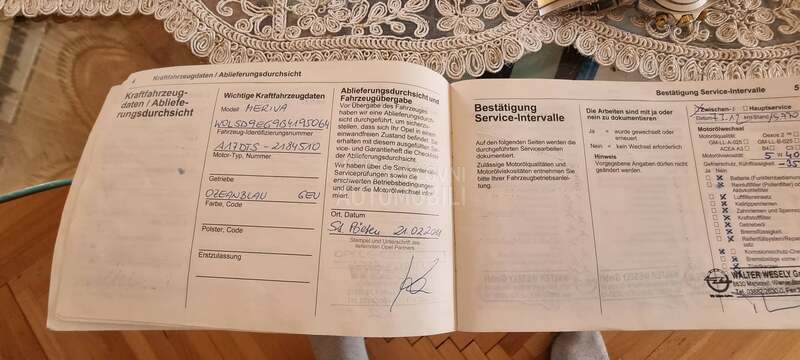 4
Kraftfahrzeugdaten / Ablieferungsdurchsicht
Kraftfahrzeug-
daten / Abliefe-
rungsdurchsicht
Wichtige Kraftfahrzeugdaten
Modell MERIVA
Fahrzeug-Identifizierungsnummer
A17DTS - 2184510
Motor-Typ, Nummer
Getriebe
OZEANBLAU GEU
Farbe, Code
Polster, Code
Erstzulassung
Ablieferungsdurchsicht und
Fahrzeugübergabe
Vor Übergabe des Fahrzeuges
haben wir eine Ablieferungsdurch-
sicht durchgeführt, um sicherzu-
stellen, dass sich Ihr Opel in einem
einwandfreien Zustand befindet. Sie
erhalten mit diesem ausgefüllten Ser-
vice- und Garantieheft die Checkliste
der Ablieferungsdurchsicht.
Wir haben über die Serviceintervalle,
Serviceprüfungen sowie die
erschwerten Betriebsbedingungen
und über die Motorölwechsel informiert
AUTOMOBILI
Ort, Datum
St. Pölten 21.02.2011
Stempel und Unterschrift des
liefernden Opel Partners
Bestätigung Service-Intervalle
5
Bestätigung
Service-Intervalle
Auf den folgenden Seiten werden die
durchgeführten Servicearbeiten
dokumentiert.
Zulässige Motorölqualitäten und
Motorölviskositäten entnehmen Sie
bitte Ihrer Fahrzeugbetriebsanlei-
tung.
Die Arbeiten sind mit ja oder
nein zu dokumentieren
Ja = wurde gewechselt oder
erneuert
Nein = kein Wechsel erforderlich
Hinweis
Vorgegebene Angaben dürfen nicht
geändert werden.
Zwischen- / Hauptservice
Datum
km/Stand
Motorölwechsel
Motorölqualität:
GM-LL-A-025 GM-LL-B-025
ACEA A3
Motorölviskosität 5 W 40
Gefrierschutz, Kühlflüssigkeit -35
Ja Nein
Batterie
Reinluftfilter (Pollenfilter)
Aktivkohlefilter
Luftfiltereinsatz
Keilrippenriemen
Zahnriemen und Spannrolle
Kraftstofffilter
Getriebeöl
Bremsflüssigkeit
WALTER WESELY